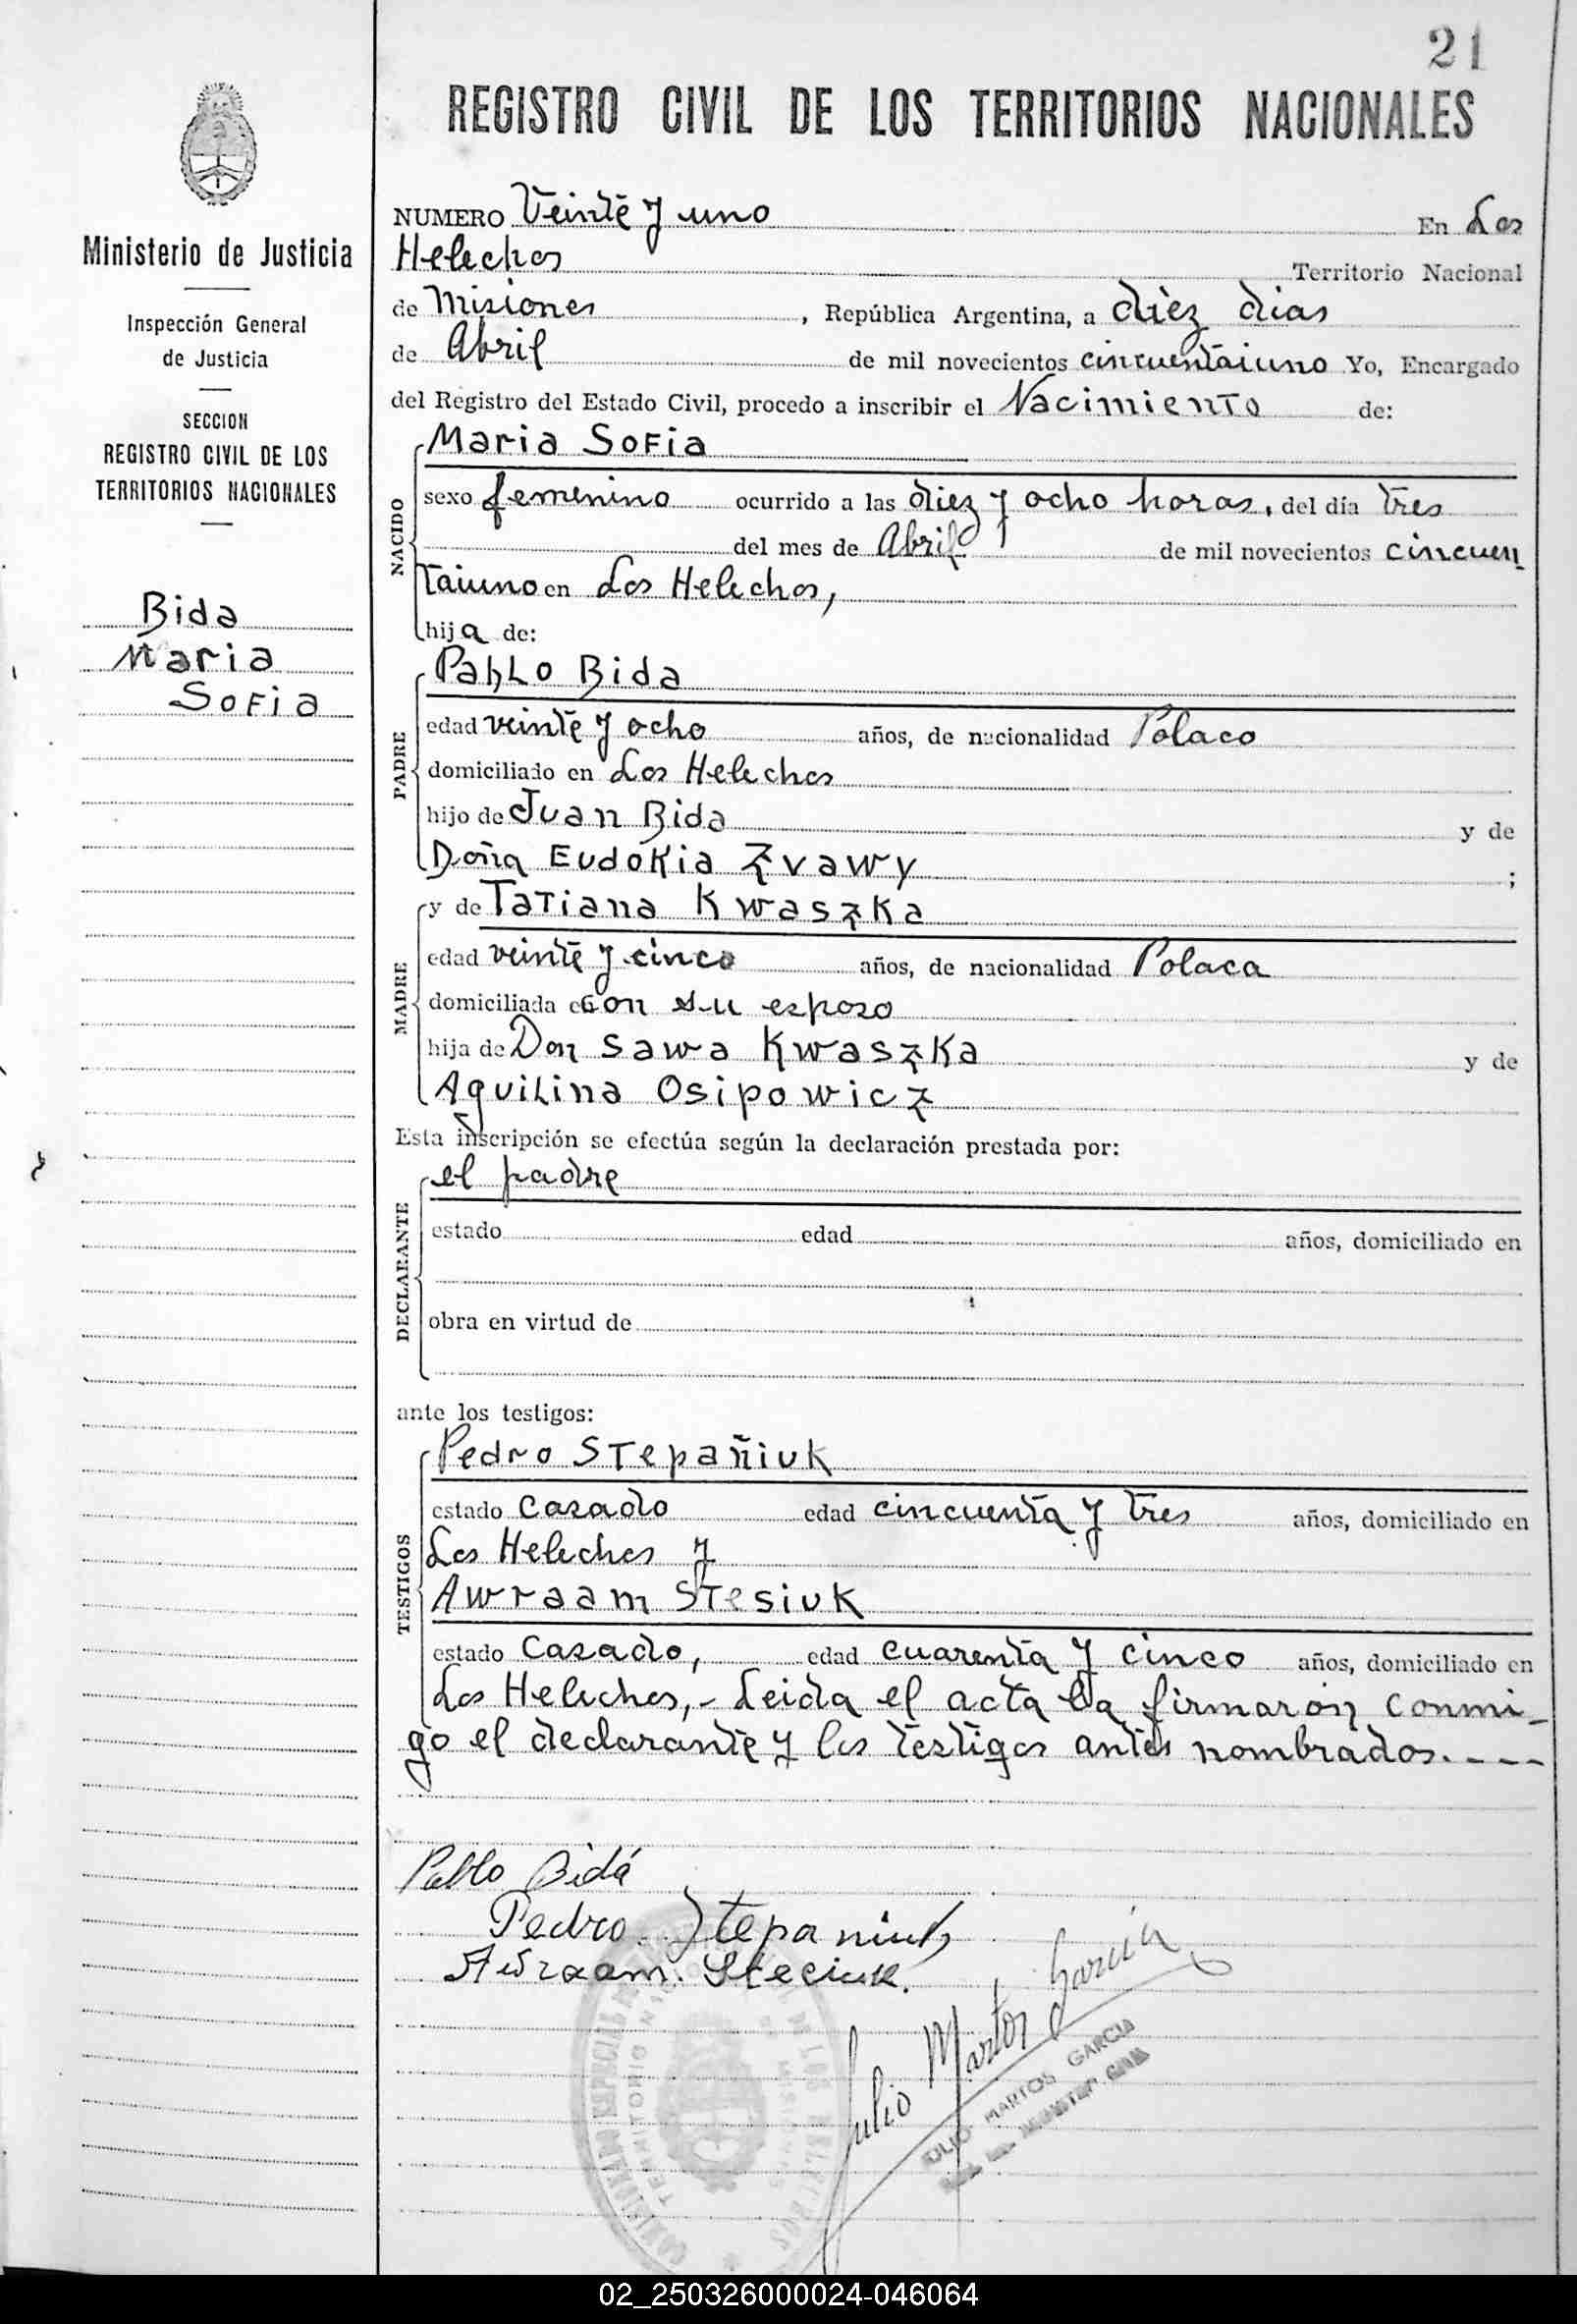 21
REGISTRO CIVIL DE LOS TERRITORIOS NACIONALES
Ministerio de Justicia
Inspección General
de Justicia
SECCION
REGISTRO CIVIL DE LOS
TERRITORIOS NACIONALES
Bida
Maria
Sofia
NUMERO Veinte y uno En Los
Helechos Territorio Nacional
de Misiones, República Argentina, a diez dias
de Abril de mil novecientos cincuentaiuno Yo, Encargado
del Registro del Estado Civil, procedo a inscribir el Nacimiento de:
NACIDO
Maria Sofia
sexo femenino ocurrido a las diez y ocho horas, del día tres
del mes de Abril de mil novecientos cincuen
taiuno en Los Helechos,
hija de:
PADRE
Pablo Bida
edad veinte y ocho años, de nacionalidad Polaco
domiciliado en Los Helechos
hijo de Juan Bida y de
Doña Eudokia Zvawy ;
MADRE
y de Tatiana Kwaszka
edad veinte y cinco años, de nacionalidad Polaca
domiciliada con su esposo
hija de Don Sawa Kwaszka y de
Aquilina Osipowicz
Esta inscripción se efectúa según la declaración prestada por:
DECLARANTE
el padre
estado edad años, domiciliado en
obra en virtud de
ante los testigos:
TESTIGOS
Pedro Stepañiuk
estado casado edad cincuenta y tres años, domiciliado en
Los Helechos y
Awraam Stesiuk
estado casado, edad cuarenta y cinco años, domiciliado en
Los Helechos,- Leida el acta la firmaron conmi-
go el declarante y los testigos antes nombrados.----
Pablo Bidá
Pedro Stepaniuk
Awraam. Steciuk.
Julio Martos Garcia
JULIO MARTOS GARCIA
02_250326000024-046064